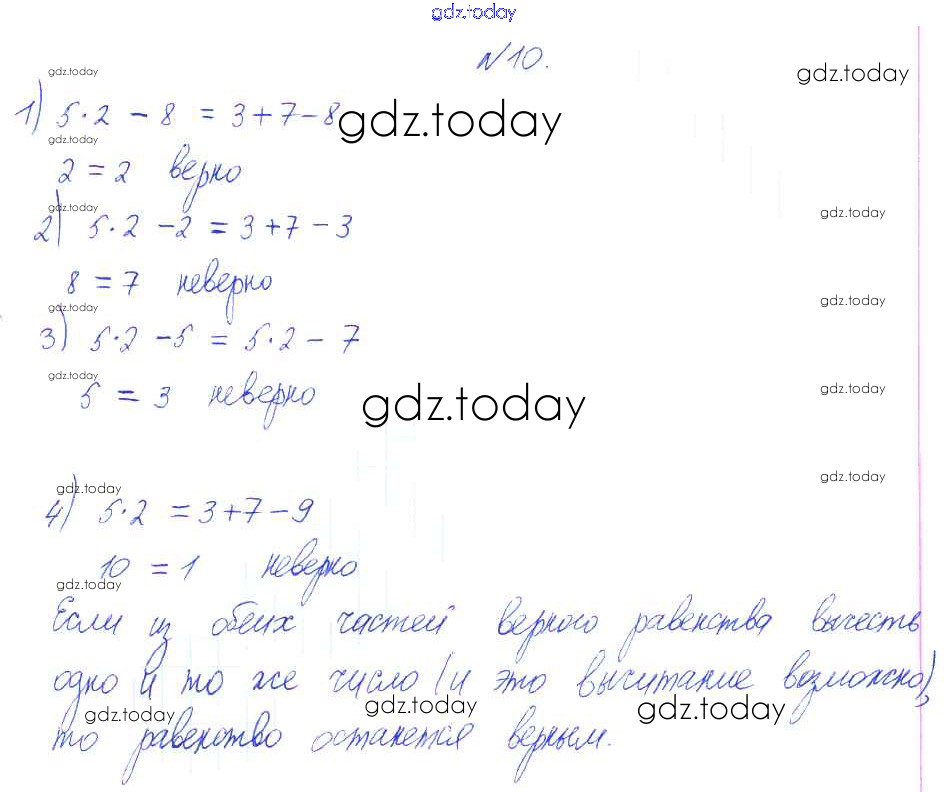 gdz.today
№10.
gdz.today gdz.today
1) 5·2 - 8 = 3+7-8 gdz.today
gdz.today
2 = 2 верно
gdz.today gdz.today
2) 5·2 - 2 = 3+7-3
8 = 7 неверно
gdz.today gdz.today
3) 5·2 - 5 = 5·2 - 7
gdz.today gdz.today
5 = 3 неверно gdz.today
gdz.today gdz.today
4) 5·2 = 3+7-9
10 = 1 неверно
gdz.today
Если из обеих частей верного равенства вычесть
одно и то же число (и это вычитание возможно),
gdz.today gdz.today gdz.today
то равенство останется верным.